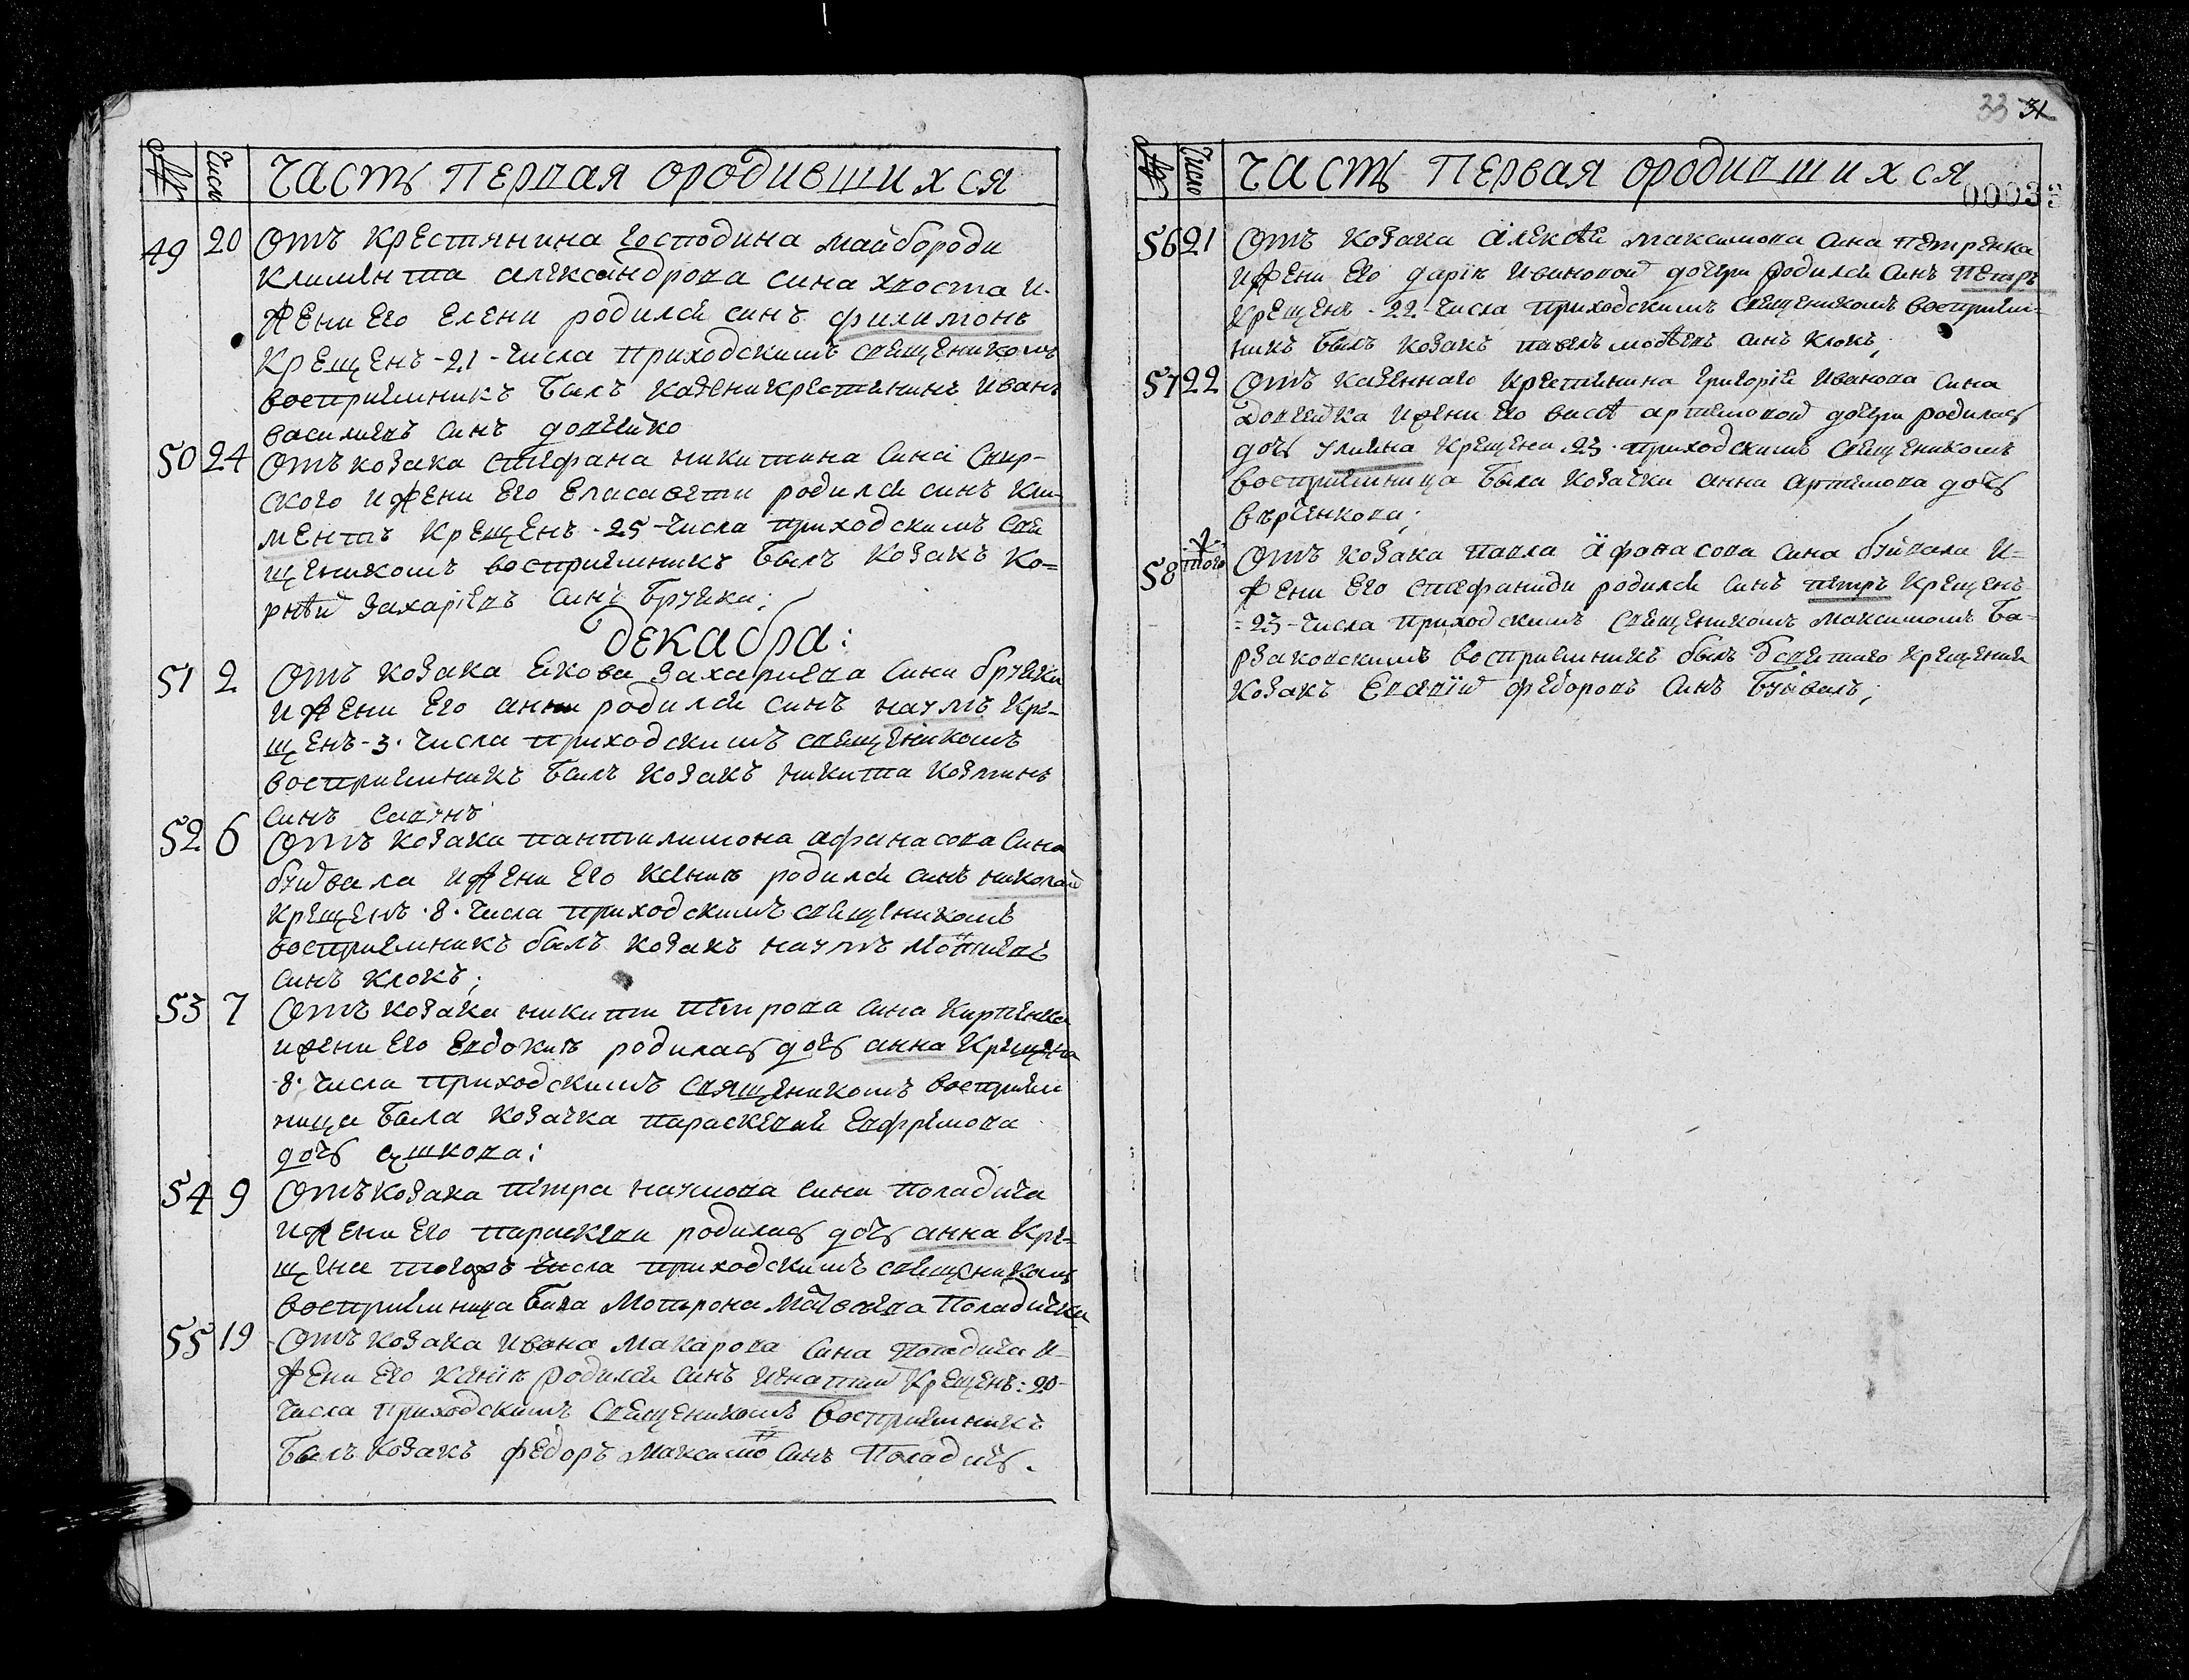 № Число Часть первая ородившихся
49 20 Отъ крестянина господина майбороди
климента александрова сина хвоста и
жени его елени родился синъ филимонъ
крещенъ - 21 - числа приходскимъ свещеникомъ
восприемникъ билъ казени крестянинъ иванъ
василиевъ синъ довгейко
50 24 Отъ козака стефана никитина сина
ского и жени его елисавети родился синъ кли-
ментъ крещенъ - 25 - числа приходскимъ све
щеникомъ восприемникъ билъ козакъ ко=
рнѣй захарiевъ синъ бруяка;
декабра:
51 2 Отъ козака якова захариева сина бруяки
и жени его анни родился синъ наумъ кре-
щенъ - 3 · числа приходскимъ свещеникомъ
восприемникъ билъ козакъ никита козминъ
синъ савунъ
52 6 Отъ козака пантилимона афанасова сина
буйвала и жени его ксении родился синъ николай
крещенъ · 8 · числа приходскимъ свещеникомъ
восприемникъ былъ козакъ наумъ
синъ клокъ;
53 7 Отъ козака никити петрова сина карпенка
и жени его евдокии родилась дочь анна крещена
· 8 · числа приходскимъ священикомъ восприем
ница била козачка параскевия евфремова
дочь сушкова:
54 9 Отъ козака петра наумова сина поладича
и жени его параскеви родилась дочь анна кре=
щена тогожъ числа приходскимъ свещеникомъ
восприемница била мотрона поладичка
55 19 Отъ козака ивана макарова сина поладича и
жени его ксенiи родился синъ игнатий крещенъ : 20 -
числа приходскимъ свещеникомъ восприемникъ
билъ козакъ федоръ максимо синъ поладичъ.
33 31
№ Число Часть первая ородившихся
00033
56 21 Отъ козака алексѣя максимова сина петренка
и жени его дарiи ивановой дочери родился синъ петръ
крещенъ - 22 - числа приходскимъ свещеникомъ восприем=
никъ былъ козакъ павелъ синъ клокъ;
57 22 Отъ казенного крестянина григорiя иванова сина
довгейка и жени его артемовой дочери родилась
дочь улияна крещена 23 · приходскимъ свещеникомъ
восприемница была козачка анна артемова дочь
58 того Отъ козака павла афонасова сина буйвала и=
жени его стефаниди родился синъ петръ крещенъ
= 23 - числа приходскимъ свещеникомъ максимомъ ба-
рзаковскимъ восприемникъ былъ крещения
козакъ федоровъ синъ буйвалъ;